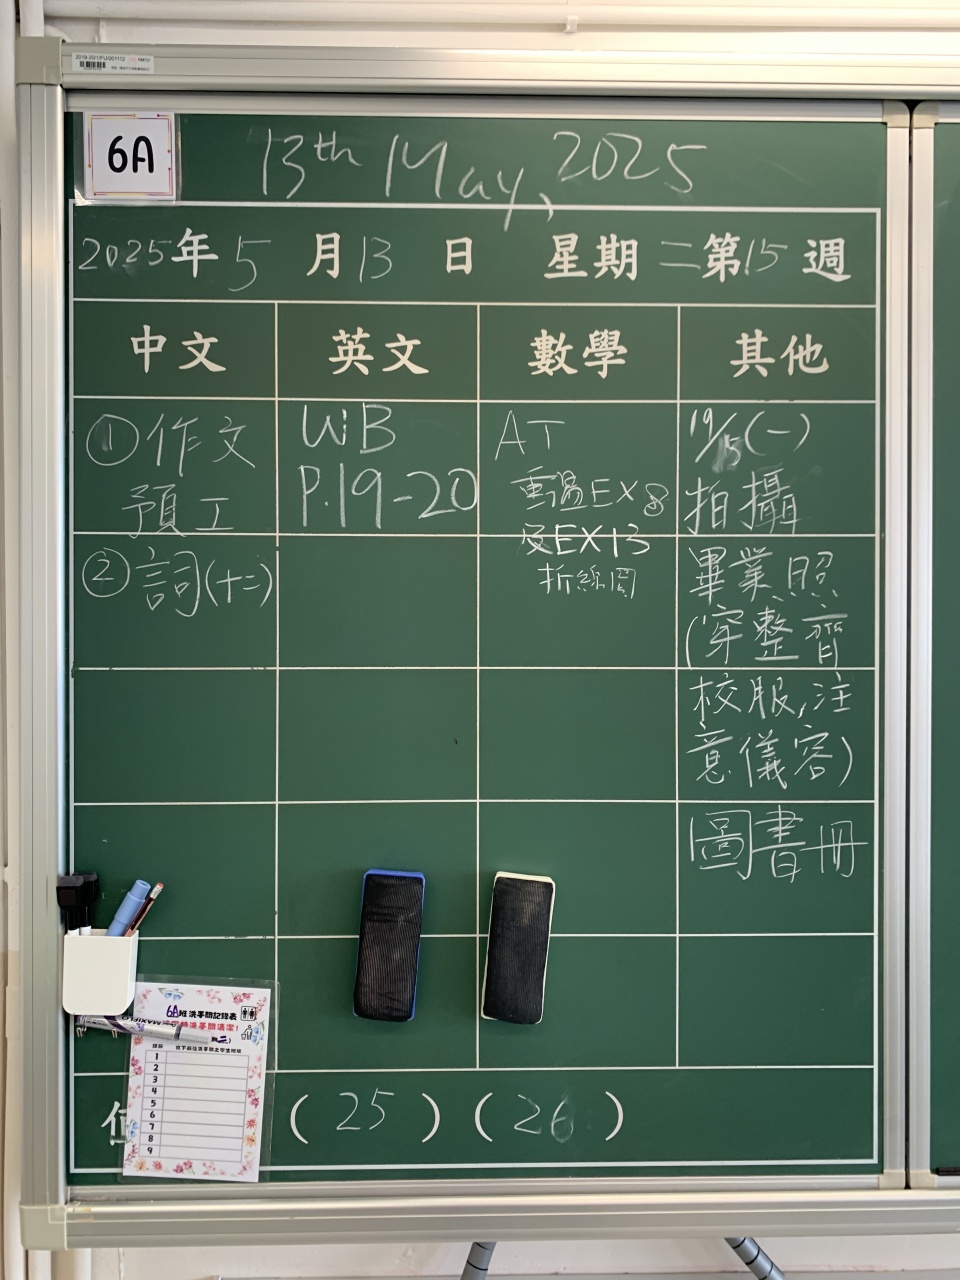 2019-20/1/FU/001112
6A
13th May, 2025
2025年5月13日 星期二第15週
中文 英文 數學 其他
①作文
預工
②詞(十二)
WB
P.19-20
AT
重溫EX8
及EX13
折線圖
19/5(一)
拍攝
畢業照
(穿整齊
校服,注
意儀容)
圖書冊
(25)(26)
6A班洗手間記錄表
1
2
3
4
5
6
7
8
9